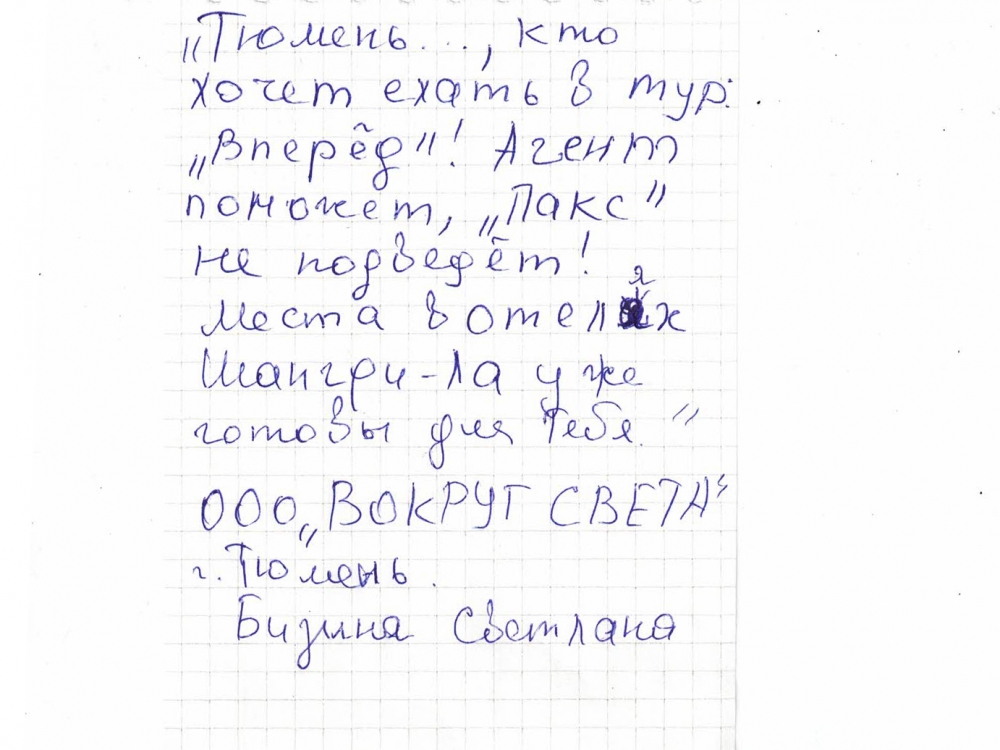 „Тюмень..., кто
хочет ехать в тур:
„Вперёд"! Агент
поможет, „Пакс"
не подведёт!
Места в отелях
Шангри-Ла уже
готовы для тебя."
ООО „ВОКРУГ СВЕТА"
г. Тюмень.
Бизина Светлана